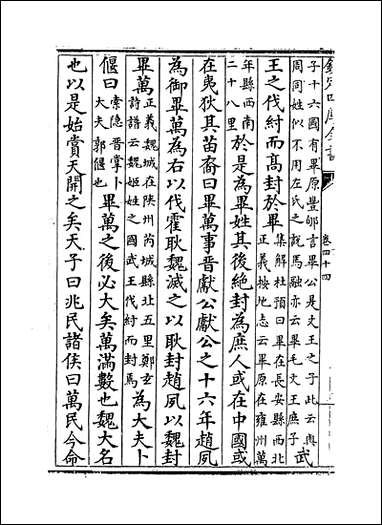 欽定四庫全書
卷四十四
子十六國有畢原豐郇言畢公是文王之子此云與
周同姓似不用左氏之說馬融亦云畢毛文王庶子
武
王之伐紂而高封於畢
集解杜預曰畢在長安縣西北
正義括地志云畢原在雍州萬
年縣西南
二十八里
於是為畢姓其後絕封為庶人或在中國或
在夷狄其苗裔曰畢萬事晉獻公獻公之十六年趙夙
為御畢萬為右以伐霍耿魏滅之以耿封趙夙以魏封
畢萬
正義魏城在陜州芮城縣北五里鄭玄
詩譜云魏姬姓之國武王伐紂而封焉
為大夫卜
偃曰
索隱晉掌卜
大夫郭偃也
畢萬之後必大矣萬滿數也魏大名
也以是始賞天開之矣天子曰兆民諸侯曰萬民今命